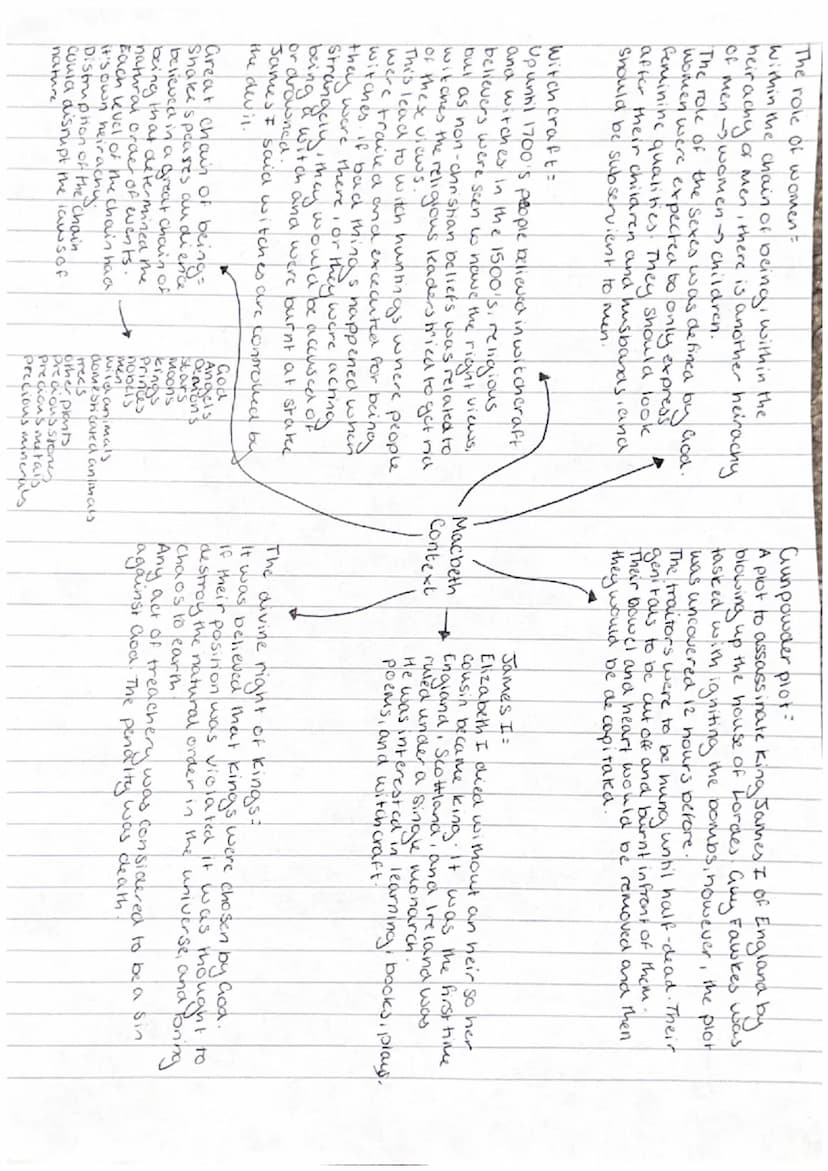 The role of women=
Within the chain of being, within the
heirachy of men, there is another heirachy
of men → women → children.
The role of the sexes was defined by God.
Women were expected to only express
feminine qualities. They should look
after their children and husbands, and
should be subservient to men.
Witchcraft=
Up until 1700's people believed in witchcraft
and witches in the 1500's, religious
believers were seen to have the right views,
but as non-christian beliefs was related to
witches the religious leaders tried to get rid
of these views.
This lead to witch huntings where people
were trailed and excecuted for being
witches. if bad things happened when
they were there, or they were acting
strangely, they would be accused of
being a witch and were burnt at stake
or drowned.
James I said witches are controlled by
the devil.
Great chain of being=
Shakespeares audience
believed in a great chain of
being that determined the
natural order of events.
Each level of the chain had
it's own heirachy.
Distruption of the chain
could disrupt the laws of
nature
God
Angels
Demons
stars
moons
kings
princes
nobels
men
wild animals
domesticated animals
trees
other plants
precious stones
precious metals
precious minerals
Macbeth
Context
Gunpowder plot=
A plot to assassinate king James I of England by
blowing up the house of Lordes. Guy Fawkes was
tasked with igniting the bombs, however, the plot
was uncovered 12 hours before.
The traitors were to be hung until half-dead. Their
genitals to be cut off and burnt infront of them.
Their bowel and heart would be removed and then
they would be decapitated.
James I=
Elizabeth I died without an heir so her
cousin became king. It was the first time
England, Scottland, and Ireland was
ruled under a single monarch.
He was interested in learning, books, plays,
poems, and witchcraft.
The divine right of kings=
It was believed that kings were chosen by God.
if their position was violated it was thought to
destroy the natural order in the universe, and bring
chaos to earth.
Any act of treachery was considered to be a sin
against God. The penality was death.